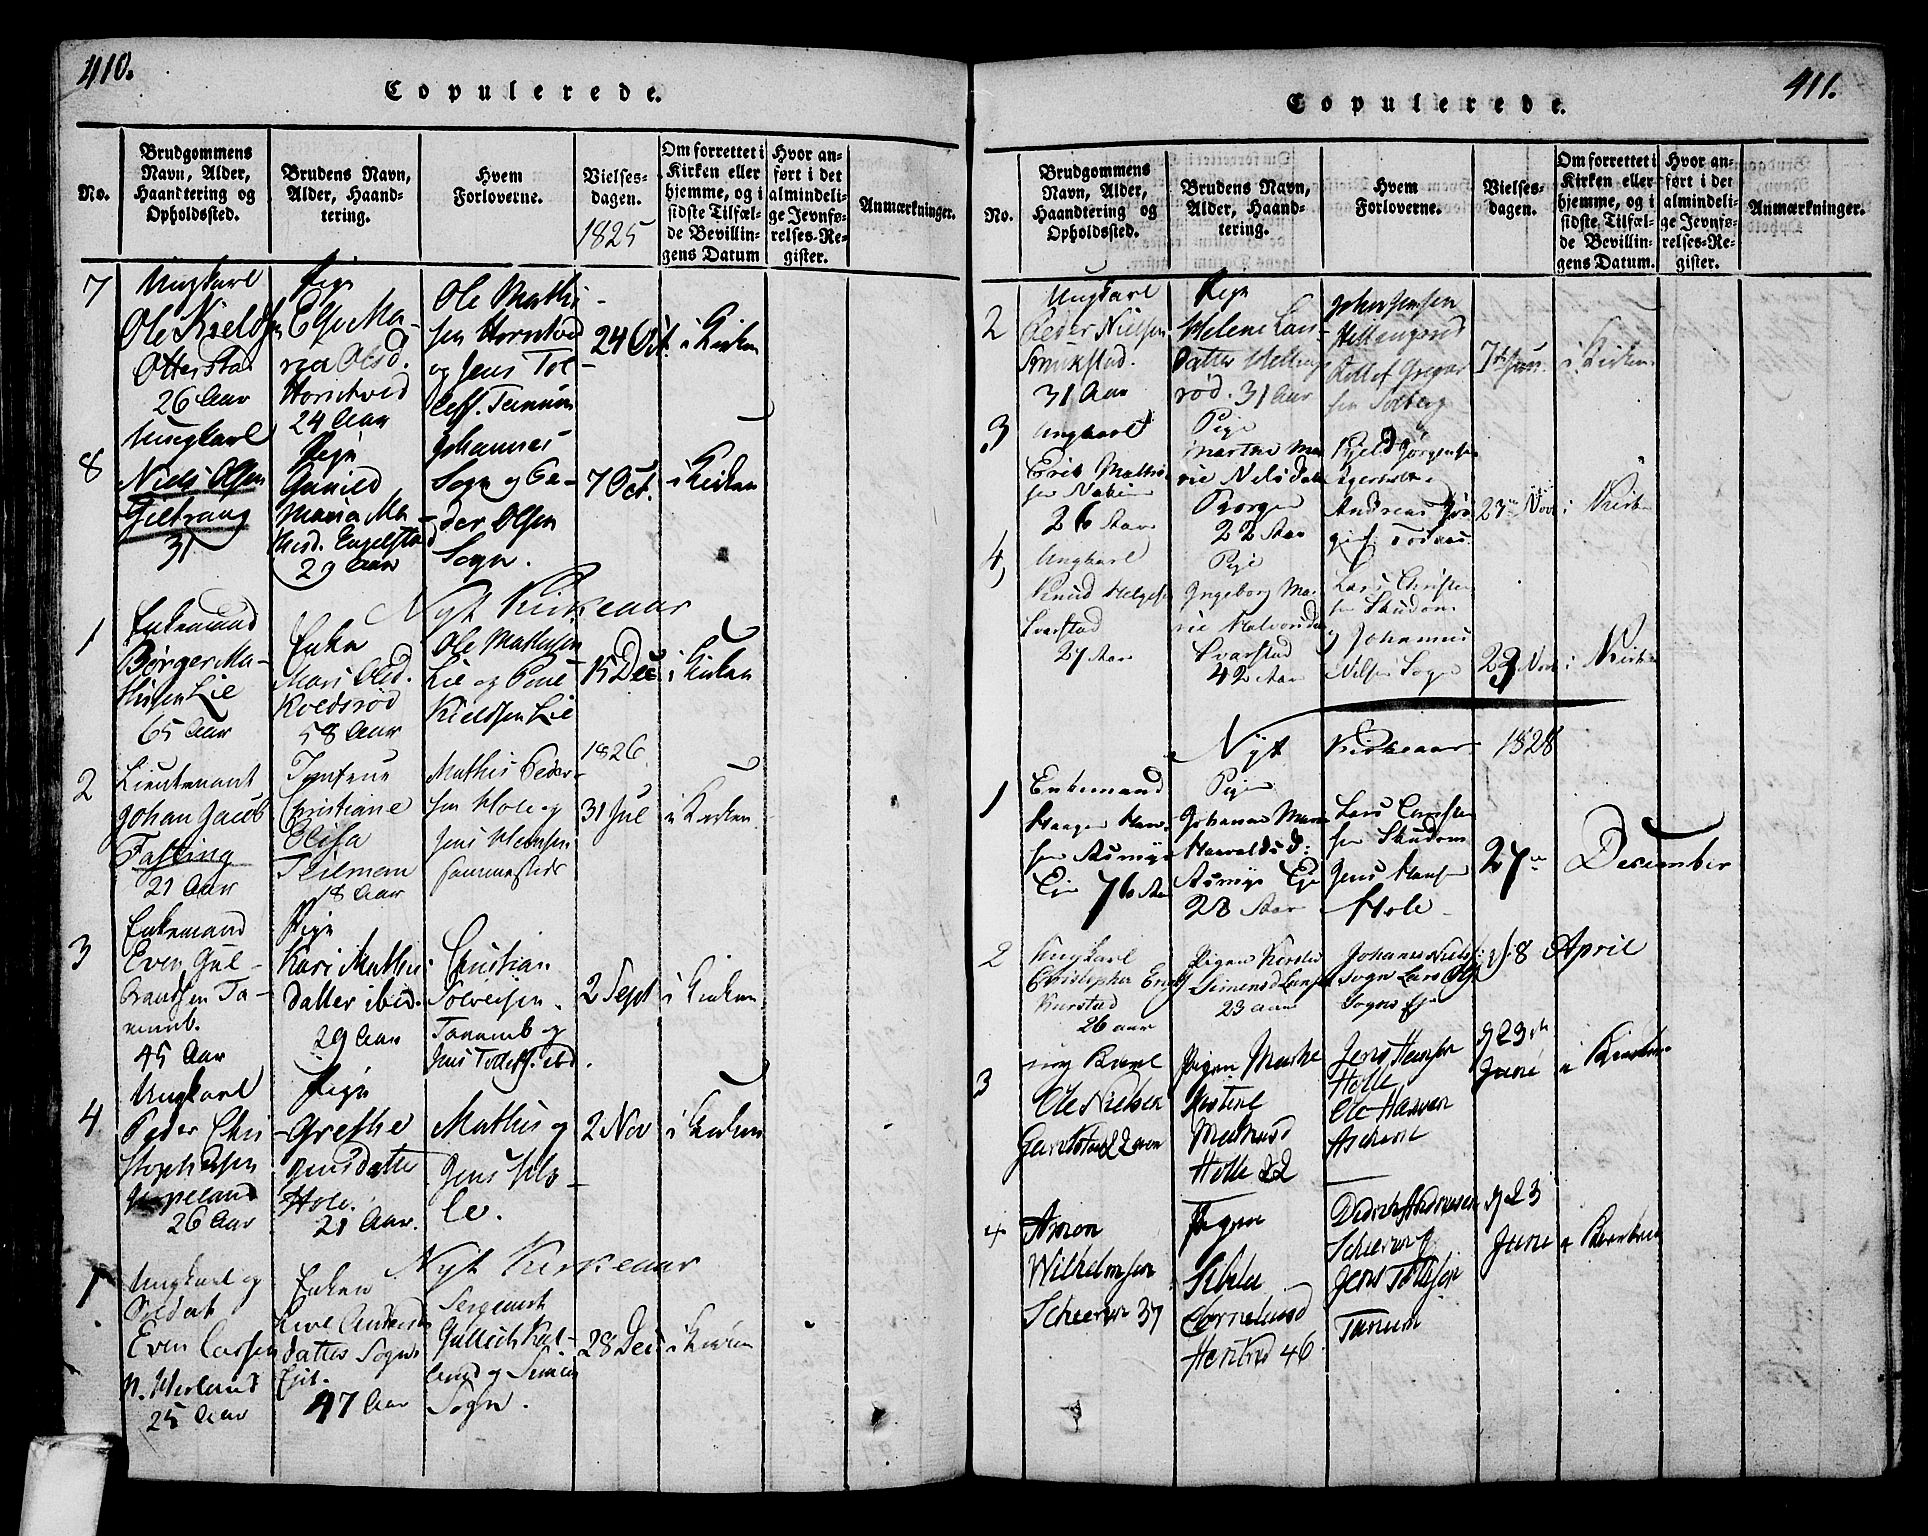 410.
Copulerede.
No.
Brudgommens
Navn, Alder,
Haandtering og
Opholdssted.
Brudens Navn,
Alder, Haand-
tering.
Hvem
Forloverne.
Vielses-
dagen.
1825
Om forrettet i
Kirken eller
hjemme, og i
sidste Tilfæl-
de Bevillin-
gens Datum
Hvor an-
ført i det
almindeli-
ge Jevnfø-
relses-Re-
gister.
Anmærkninger.
7
Ungkarl
Ole Kieldsen
Ottersta
26 Aar
Pige
Ma-
ria Olsd.
Horntved
24 Aar
Ole Mathi-
sen Horntved
og Jens Tol-
lefs. Tanum
24 Oct.
i Kirken
8
Ungkarl
Niels Olsen
31
Pige
Gunild
Maria Ma-
thisd. Engelstad
29 Aar
Johannes
Sogn og Pe-
der Olsen
Sogn.
7 Oct.
i Kirken
Nyt Kirkeaar
1
Enkemand
Børger Ma-
thisen Lie
65 Aar
Enke
Mari Olsd.
Kvedsrød
58 Aar
Ole Mathisen
Lie og Poul
Kieldsen Lie
15 Dec
i Kirken
1826
2
Lieutenant
Johan Jacob
Fasting
21 Aar
Jomfrue
Christiane
Elisa
Tilman
18 Aar
Mathis Peder-
sen Hole og
Jens Hansen
sammesteds
31 Jul
i Kirken
3
Enkemand
Even Gul-
brandsen Ta-
numb.
45 Aar
Pige
Kari Mathis
datter ibid.
29 Aar
Christian
Solvesen
Tanumb og
Jens Tollefs. ibd.
2 Sept
i Kirken
4
Ungkarl
Peder Chri
stophersen
26 Aar
Pige
Grethe
Jensdatter
Hole.
21 Aar.
Mathis og
Jens Ho-
le.
2 Nov
i Kirken
Nyt Kirkeaar
1
Ungkarl og
Soldat
Even Larsen
N. Verland
25 Aar
Enken
Live Anders
datter Sogns
Eje.
47 Aar
Sergeant
Gullich Kol-
lerud og Simen
Sogn.
28 Dec
i Kirken
411.
Copulerede.
No.
Brudgommens
Navn, Alder,
Haandtering og
Opholdssted.
Brudens Navn,
Alder, Haand-
tering.
Hvem
Forloverne.
Vielses-
dagen.
Om forrettet i
Kirken eller
hjemme, og i
sidste Tilfæl-
de Bevillin-
gens Datum.
Hvor an-
ført i det
almindeli-
ge Jevnfø-
relses-Re-
gister.
Anmærkninger.
2
Ungkarl
Peder Nielsen
31 Aar
Pige
Helene Lars-
datter Helling
rød. 31 Aar
Johan Jensen
Hellingrød
Detlef Gregar
sen Solberg
7de Juni
i Kirken
3
Ungkarl
Erik Mathi-
sen
26 Aar
Pige
Marthe Ma
rie Nilsdatter
Borge
22 Aar
Kjeld Jørgensen
Agerholt
Andreas
23de Nov
i Kirken
4
Ungkarl
Knud Helgesen
Svarstad
27 Aar
Pige
Ingeborg Ma
rie Halvorsda
Svarstad
42 Aar
Lars Christen
sen Skudom
og Johannes
Nilsen Sogn
29 Nov
i Kirken
Nyt Kirkeaar 1828
1
Enkemand
Haagen Han-
sen Asmyr
Eie 76 Aar
Pige
Johanne Marie
Harvaldsd:
Asmyr Eje
28 Aar
Lars Christen
sen Skudom
Jens Hansen
Hole
27de
December
2
Ungkarl
Christopher Erics
26 aar
Pigen Kirstie
Simensd
23 aar
Johannes Niels
Sogn Lars
Sogns Eje
d. 8 April
3
ung Karl
Ole Nielsen
22 aar
Pigen Marthe
Kirstine
Mathisd
Holle 22
Jens Hansen
Holle
Ole Hansen
d 23de
Juni
i Kirken
4
Amon
Wilhelmsen
Scheerve 37
Pigen
Sibilla
Cornelusd
46
Didrich Andersen
Scheerve
Jens Tollefsen
Tanum
d 23
Juni
i Kirken